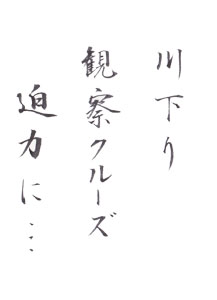 川下り
観察クルーズ
迫力に…